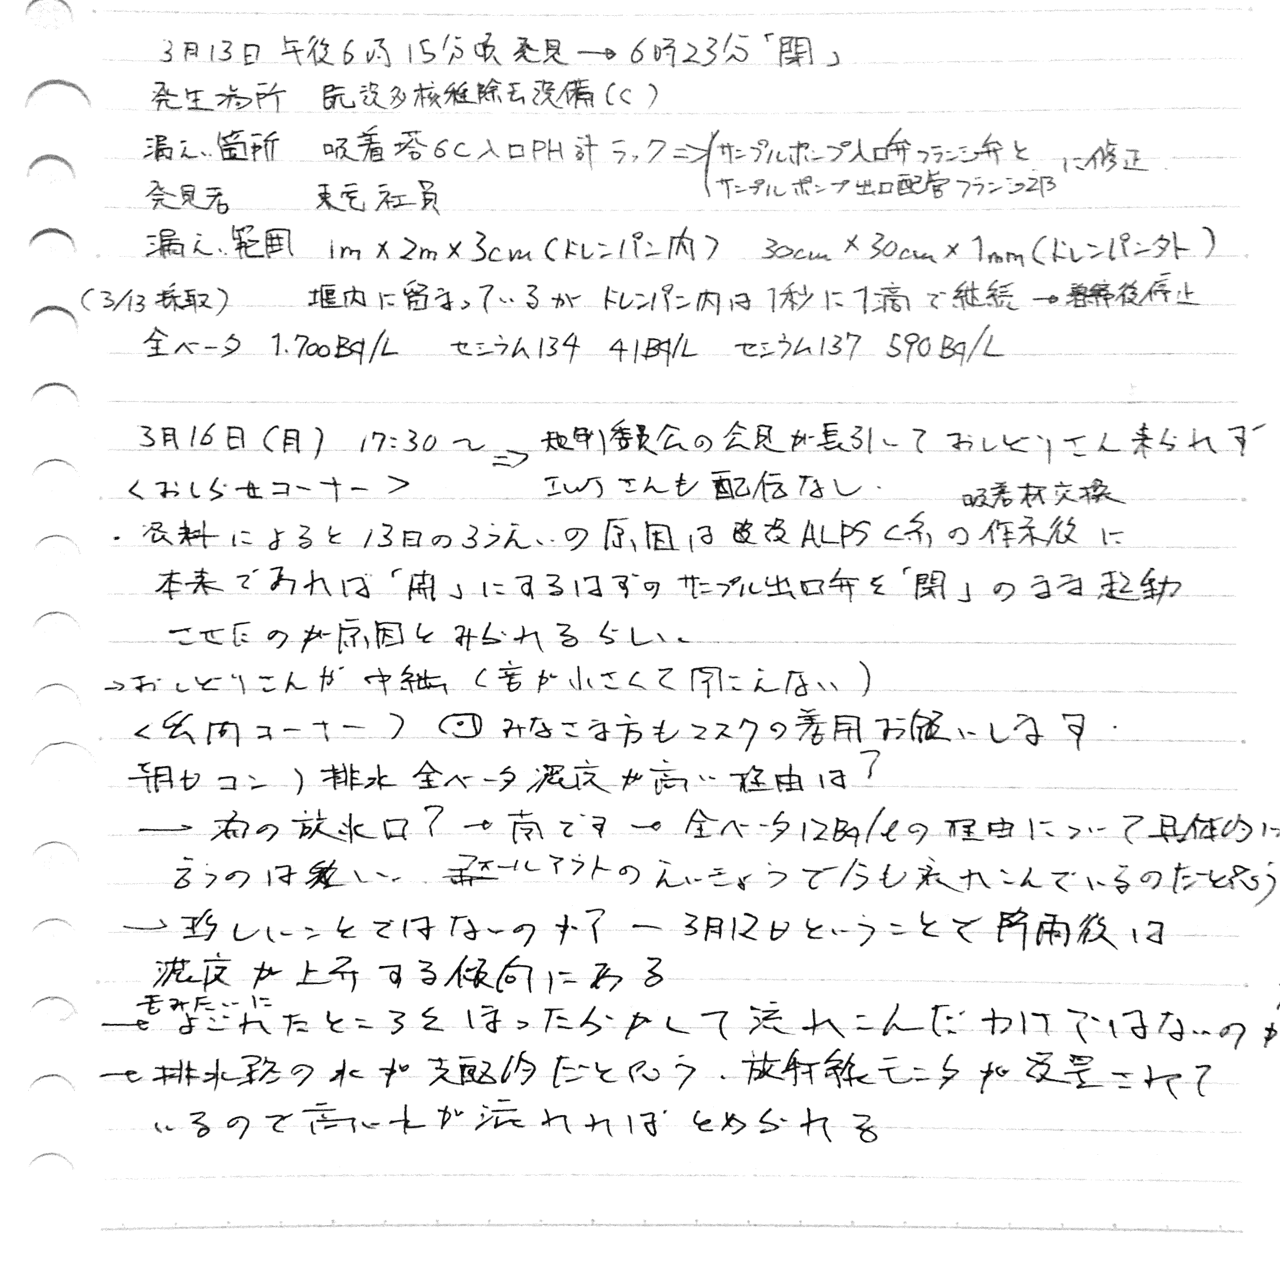 3月13日 午後6時15分頃発見→6時23分「閉」
発生場所 既設多核種除去設備(C)
漏えい箇所 吸着塔6C入口PH計ラック⇒(サンプルポンプ入口弁フランジ弁と
サンプルポンプ出口配管フランジ部 に修正
発見者 東電社員
漏えい範囲 1m×2m×3cm(ドレンパン内) 30cm×30cm×1mm(ドレンパン外)
(3/13採取) 堰内に留まっているが ドレンパン内は1秒に1滴で継続→ 後停止
全ベータ 1.700Bq/L セシウム134 41Bq/L セシウム137 590Bq/L
3月16日(月) 17:30~⇒ 規制委員会の会見が長引いておしどりさん来られず
<おしらせコーナー> IWJさんも配信なし.
吸着材交換
・資料によると13日のろうえいの原因は ALPS C系の作業後に
本来であれば「開」にするはずのサンプル出口弁を「閉」のまま起動
させたのが原因とみられるらしい.
→おしどりさんが中継(音が小さくて聞こえない)
<質問コーナー> みなさま方もマスクの着用お願いします.
朝日コン)排水 全ベータ濃度が高い理由は?
→南の放水口?→南です→全ベータ12Bq/ℓの理由について具体的に
言うのは難しい. フォールアウトのえいきょうで今も流れこんでいるのだと思う
→珍しいことではないのか?→3月12日ということで降雨後は
濃度が上昇する傾向にある
→ みたいに
よごれたところをほったらかして流れこんだわけではないのか
→排水路の水が支配的だと思う.放射線モニタが設置されて
いるので高い水が流れればとめられる